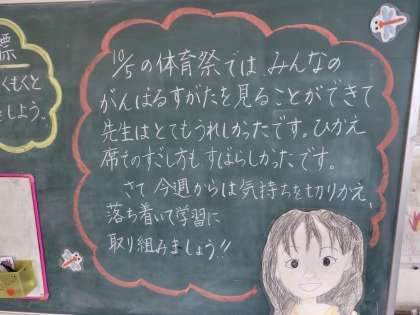 標
くもくと
しよう。
10/5の体育祭では、みんなの
がんばるすがたを見ることができて
先生はとてもうれしかったです。ひかえ
席でのすごし方もすばらしかったです。
さて今週からは気持ちを切りかえ、
落ち着いて学習に
取り組みましょう!!